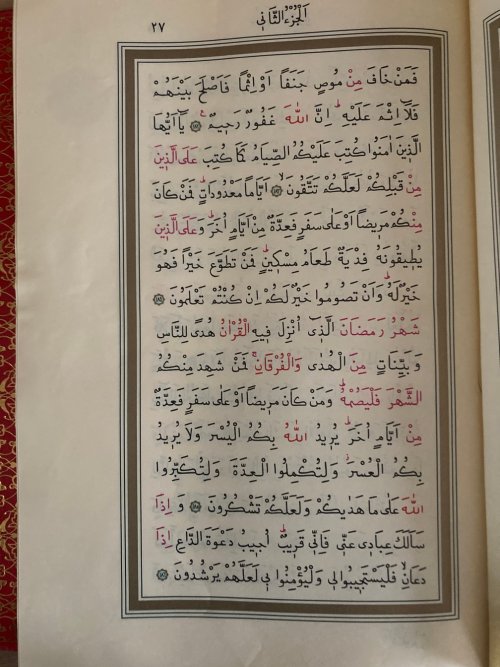 اَلْجُزْءُ الثَّانٖي
٢٧
فَمَنْ خَافَ مِنْ مُوصٍ جَنَفًا اَوْ اِثْمًا فَاَصْلَحَ بَيْنَهُمْ
فَلَٓا اِثْمَ عَلَيْهِؕ اِنَّ اللّٰهَ غَفُورٌ رَحٖيمٌࣖ ﴿١٨٢﴾ يَٓا اَيُّهَا
الَّذٖينَ اٰمَنُوا كُتِبَ عَلَيْكُمُ الصِّيَامُ كَمَا كُتِبَ عَلَى الَّذٖينَ
مِنْ قَبْلِكُمْ لَعَلَّكُمْ تَتَّقُونَۙ ﴿١٨٣﴾ اَيَّامًا مَعْدُودَاتٍؕ فَمَنْ كَانَ
مِنْكُمْ مَرٖيضًا اَوْ عَلٰى سَفَرٍ فَعِدَّةٌ مِنْ اَيَّامٍ اُخَرَؕ وَعَلَى الَّذٖينَ
يُطٖيقُونَهُ فِدْيَةٌ طَعَامُ مِسْكٖينٍؕ فَمَنْ تَطَوَّعَ خَيْرًا فَهُوَ
خَيْرٌ لَهُؕ وَاَنْ تَصُومُوا خَيْرٌ لَكُمْ اِنْ كُنْتُمْ تَعْلَمُونَ ﴿١٨٤﴾
شَهْرُ رَمَضَانَ الَّذٖٓي اُنْزِلَ فٖيهِ الْقُرْاٰنُ هُدًى لِلنَّاسِ
وَبَيِّنَاتٍ مِنَ الْهُدٰى وَالْفُرْقَانِۚ فَمَنْ شَهِدَ مِنْكُمُ
الشَّهْرَ فَلْيَصُمْهُؕ وَمَنْ كَانَ مَرٖيضًا اَوْ عَلٰى سَفَرٍ فَعِدَّةٌ
مِنْ اَيَّامٍ اُخَرَؕ يُرٖيدُ اللّٰهُ بِكُمُ الْيُسْرَ وَلَا يُرٖيدُ
بِكُمُ الْعُسْرَؗ وَلِتُكْمِلُوا الْعِدَّةَ وَلِتُكَبِّرُوا
اللّٰهَ عَلٰى مَا هَدٰيكُمْ وَلَعَلَّكُمْ تَشْكُرُونَ ﴿١٨٥﴾ وَاِذَا
سَاَلَكَ عِبَادٖي عَنّٖي فَاِنّٖي قَرٖيبٌؕ اُجٖيبُ دَعْوَةَ الدَّاعِ اِذَا
دَعَانِۙ فَلْيَسْتَجٖيبُوا لٖي وَلْيُؤْمِنُوا بٖي لَعَلَّهُمْ يَرْشُدُونَ ﴿١٨٦﴾